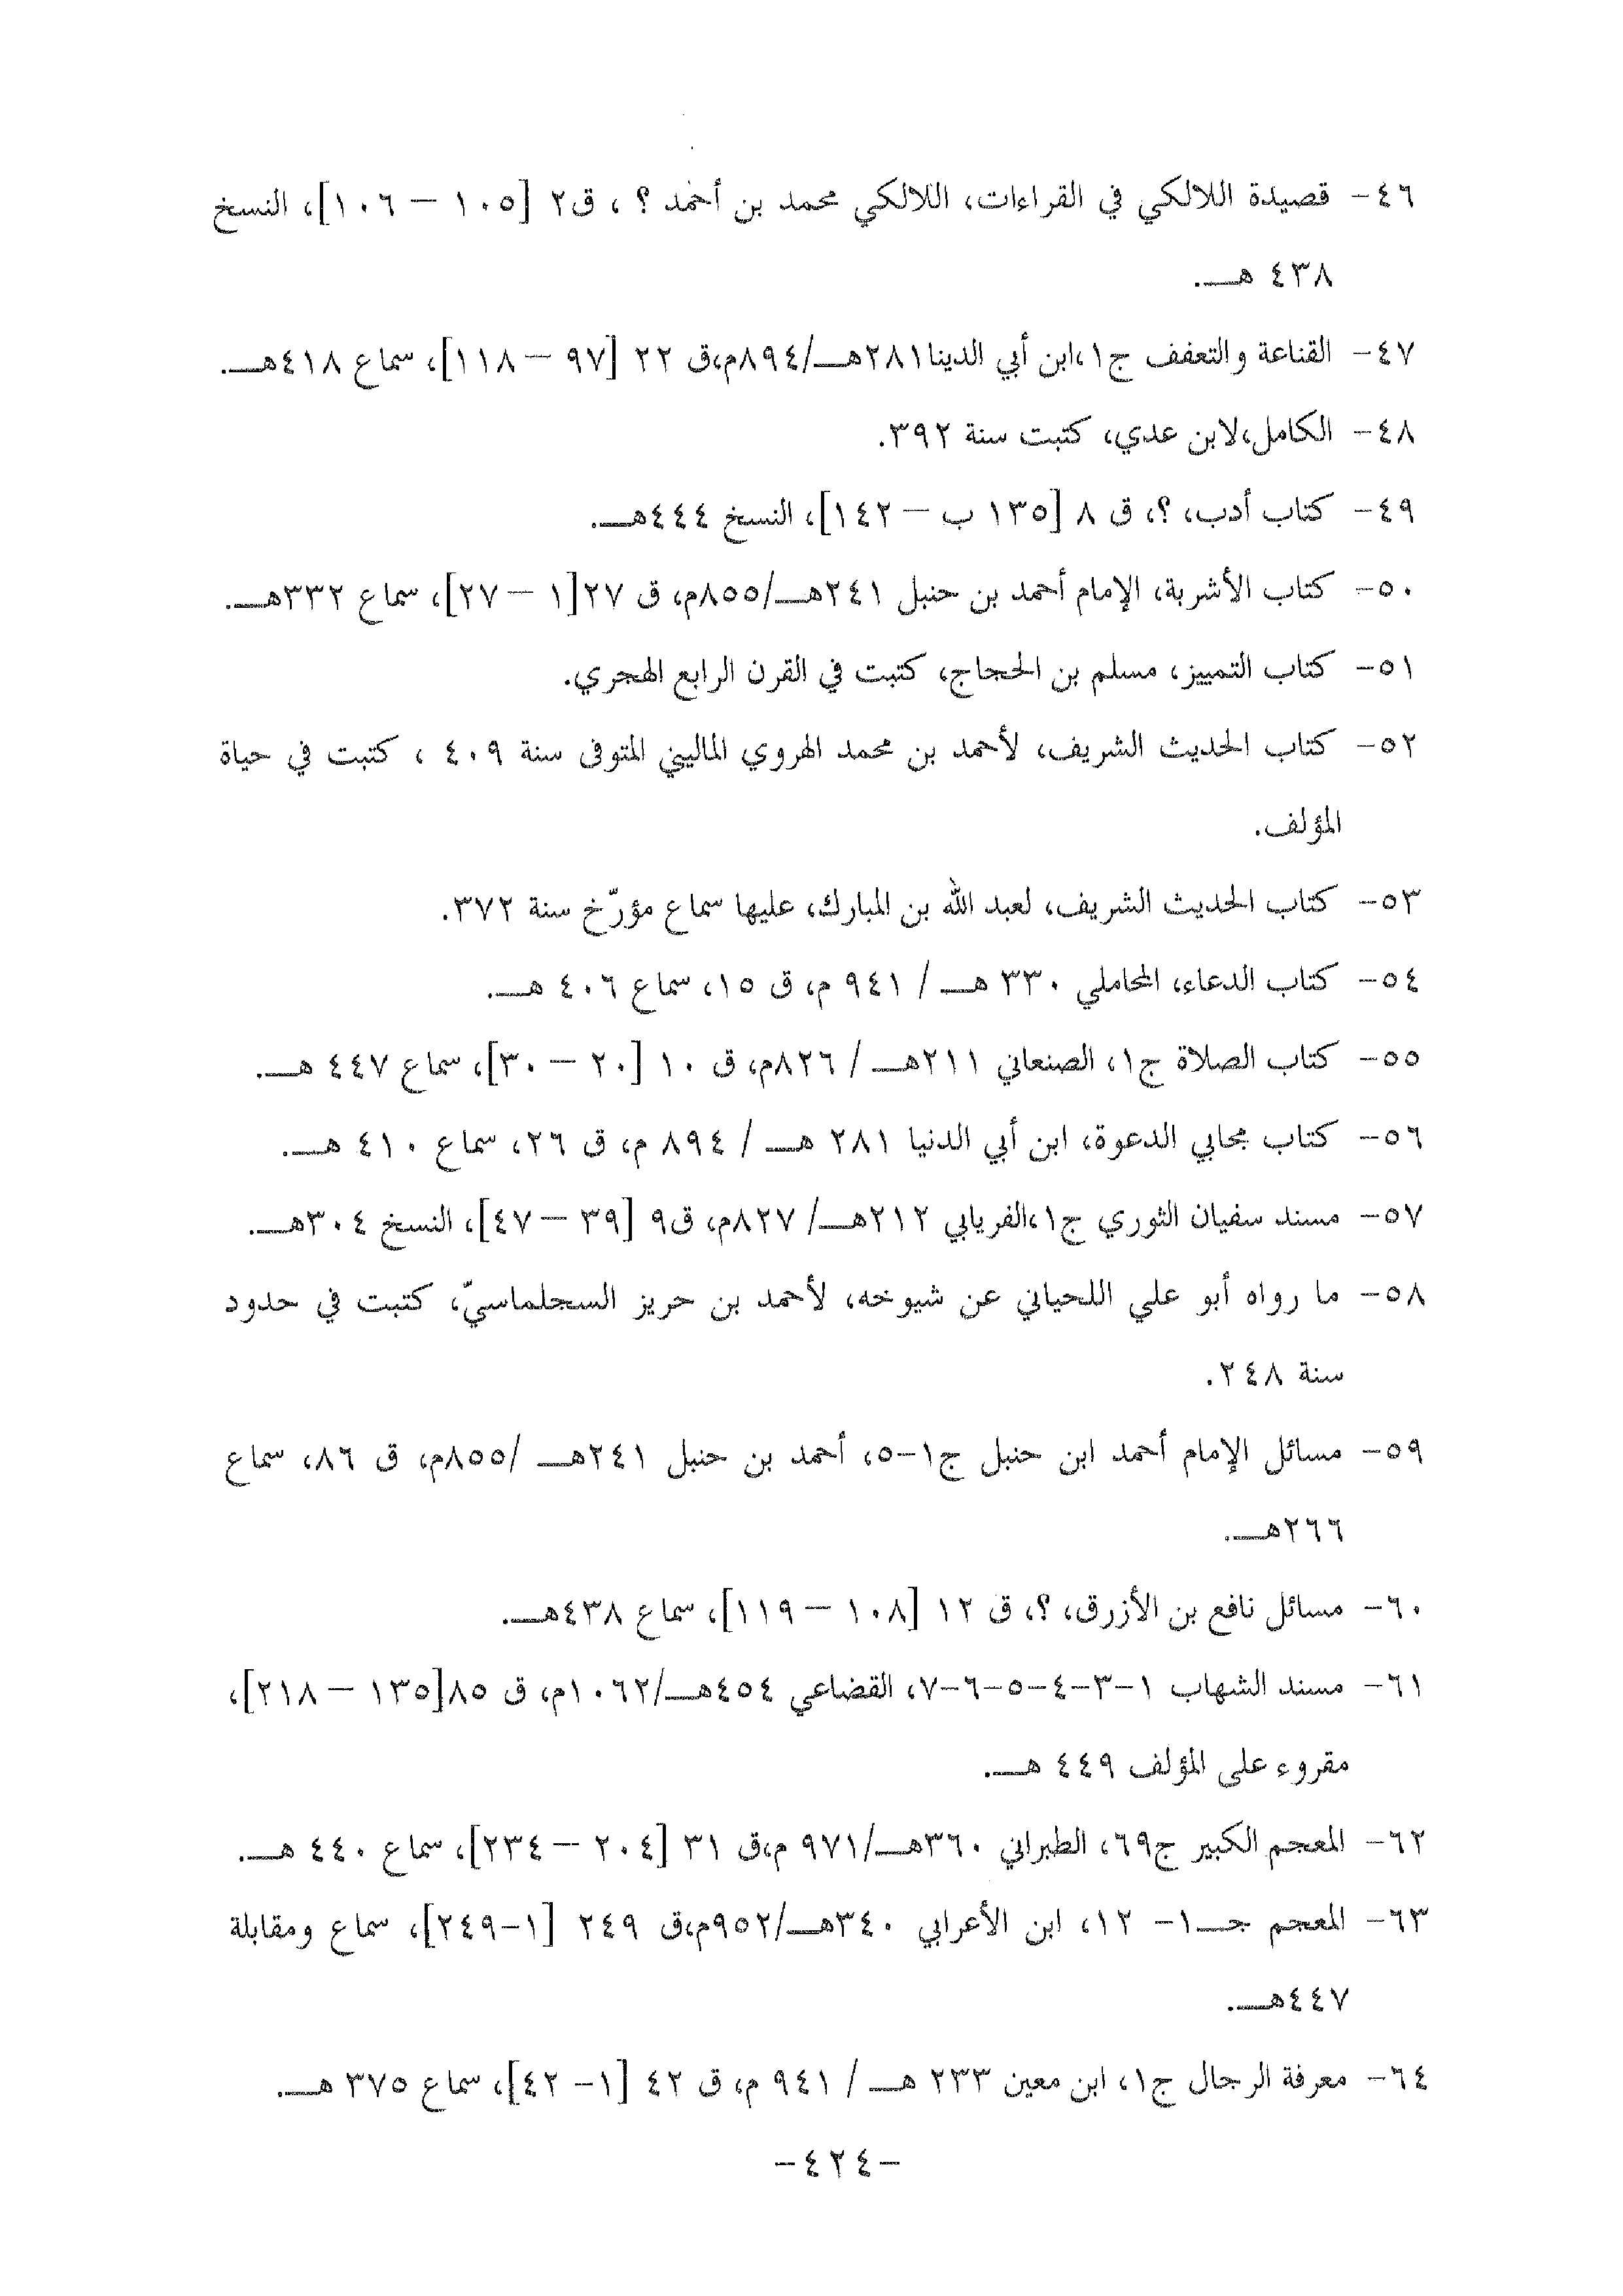 ٤٦- قصيدة اللالكي في القراءات، اللالكي محمد بن أحمد ؟ ، ق٢ [١٠٥ – ١٠٦]، النسخ
٤٣٨ هـ.
٤٧- القناعة والتعفف ج١،ابن أبي الدينا٢٨١هـ/٨٩٤م،ق ٢٢ [٩٧ – ١١٨]، سماع ٤١٨هـ.
٤٨- الكامل،لابن عدي، كتبت سنة ٣٩٢.
٤٩- كتاب أدب، ؟، ق ٨ [١٣٥ ب – ١٤٢]، النسخ ٤٤٤هـ.
٥٠- كتاب الأشربة، الإمام أحمد بن حنبل ٢٤١هـ/٨٥٥م، ق ٢٧[١ – ٢٧]، سماع ٣٣٢هـ.
٥١- كتاب التمييز، مسلم بن الحجاج، كتبت في القرن الرابع الهجري.
٥٢- كتاب الحديث الشريف، لأحمد بن محمد الهروي الماليني المتوفى سنة ٤٠٩ ، كتبت في حياة
المؤلف.
٥٣- كتاب الحديث الشريف، لعبد الله بن المبارك، عليها سماع مؤرّخ سنة ٣٧٢.
٥٤- كتاب الدعاء، المحاملي ٣٣٠ هـ / ٩٤١ م، ق ١٥، سماع ٤٠٦ هـ.
٥٥- كتاب الصلاة ج١، الصنعاني ٢١١هـ / ٨٢٦م، ق ١٠ [٢٠ – ٣٠]، سماع ٤٤٧ هـ.
٥٦- كتاب مجابي الدعوة، ابن أبي الدنيا ٢٨١ هـ / ٨٩٤ م، ق ٢٦، سماع ٤١٠ هـ.
٥٧- مسند سفيان الثوري ج١،الفريابي ٢١٢هـ/ ٨٢٧م، ق٩ [٣٩ – ٤٧]، النسخ ٣٠٤هـ.
٥٨- ما رواه أبو علي اللحياني عن شيوخه، لأحمد بن حريز السجلماسيّ، كتبت في حدود
سنة ٢٤٨.
٥٩- مسائل الإمام أحمد ابن حنبل ج١-٥، أحمد بن حنبل ٢٤١هـ /٨٥٥م، ق ٨٦، سماع
٢٦٦هـ.
٦٠- مسائل نافع بن الأزرق، ؟، ق ١٢ [١٠٨ – ١١٩]، سماع ٤٣٨هـ.
٦١- مسند الشهاب ١-٣-٤-٥-٦-٧، القضاعي ٤٥٤هـ/١٠٦٢م، ق ٨٥[١٣٥ – ٢١٨]،
مقروء على المؤلف ٤٤٩ هـ.
٦٢- المعجم الكبير ج٦٩، الطبراني ٣٦٠هـ/٩٧١ م،ق ٣١ [٢٠٤ – ٢٣٤]، سماع ٤٤٠ هـ.
٦٣- المعجم جـ١- ١٢، ابن الأعرابي ٣٤٠هـ/٩٥٢م،ق ٢٤٩ [١-٢٤٩]، سماع ومقابلة
٤٤٧هـ.
٦٤- معرفة الرجال ج١، ابن معين ٢٣٣ هـ / ٩٤١ م، ق ٤٢ [١- ٤٢]، سماع ٣٧٥ هـ.
-٤٢٤-